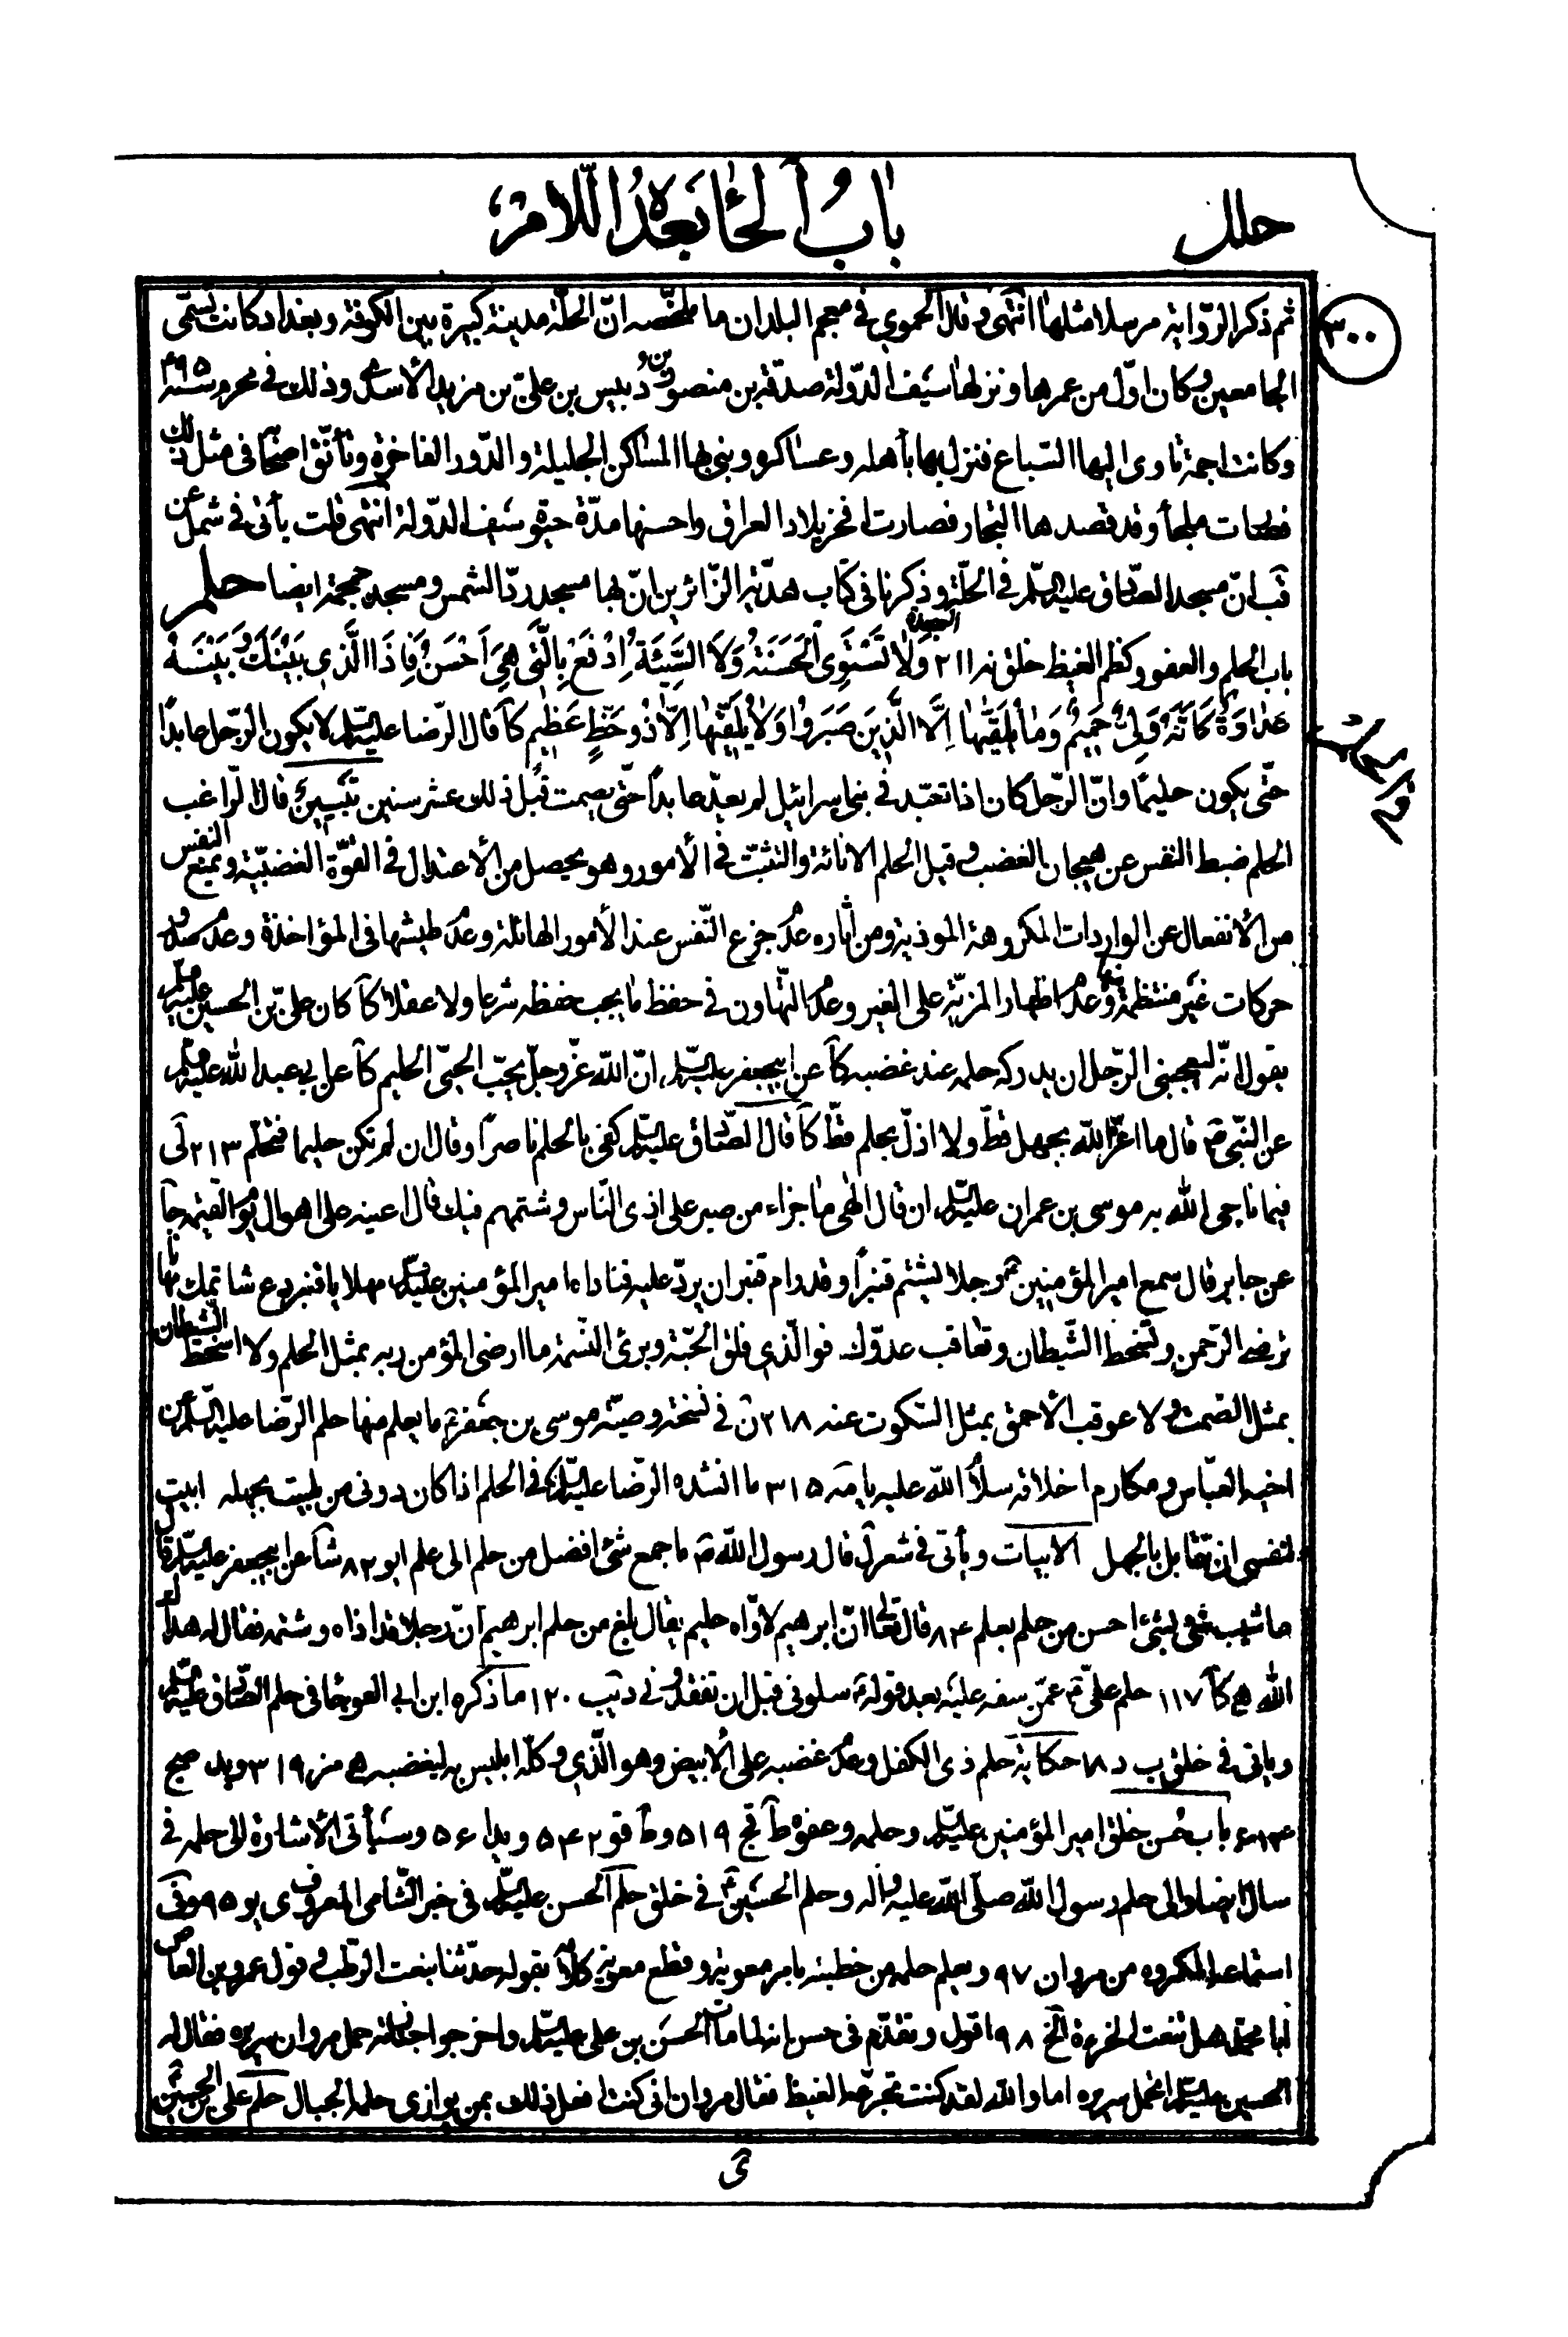 حلل
باب الحاء بعده اللام
٣٠٠
ثم ذكر الرّواية مرسلا مثلها انتهى وقال الحموي في معجم البلدان ما ملخّصه انّ الحلّة مدينة كبيرة بين الكوفة وبغداد كانت تسمّى
الجامعين وكان اوّل من عمرها ونزلها سيف الدّولة صدقة بن منصور بن دبيس بن عليّ بن مزيد الأسدي وذلك في محرم سنة ٤٩٥
وكانت اجمة تأوى اليها السّباع فنزل بها بأهله وعساكره وبنى بها المساكن الجليلة والدّور الفاخرة وتأنّق اصحابه في مثل ذلك
فصارت ملجأ وقد قصدها التجار فصارت افخر بلاد العراق واحسنها مدّة حيوة سيف الدّولة انتهى قلت يأتى في شمل عن
قب انّ مسجد الصّادق عليه السّلم في الحلّة وذكرنا في كتاب هديّة الزّائرين انّ بها مسجد ردّ الشمس ومسجد جمجمة ايضا حلم
باب الحلم والعفو وكظم الغيظ خلق نه ٢١١ السجدة وَلَا تَسْتَوِي الْحَسَنَةُ وَلَا السَّيِّئَةُ اِدْفَعْ بِالَّتي هِيَ اَحْسَنُ فَاِذَا الَّذي بَيْنَكَ وَبَيْنَهُ
عَدَاوَةٌ كَاَنَّهُ وَلِيٌّ حَمِيمٌ وَمَا يُلَقَّيٰهَا اِلَّا الَّذِينَ صَبَرُوا وَلَا يُلَقَّيٰهَا اِلَّا ذُو حَظٍّ عَظِيمٍ كا قال الرّضا عليه السّلم لا يكون الرّجل عابدًا
حتّى يكون حليمًا وانّ الرّجل كان اذا تعبّد في بنى اسرائيل لم يعدّ عابدًا حتّى يصمت قبل ذلك عشر سنين تبيين قال الرّاغب
الحلم ضبط النفس عن هيجان الغضب وقيل الحلم الاناءة والتثبّت في الأمور وهو يحصل من الأعتدال في القوّة الغضبيّة ويمنع النفس
من الأنفعال عن الواردات المكروهة الموذية ومن آثاره عدم جزع النّفس عند الأمور الهائلة وعدم طيشها في المؤاخذة وعدم صدور
حركات غير منتظمة منها وعدم اظهار المزيّة على الغير وعدم التّهاون في حفظ ما يجب حفظه شرعا ولا عقلا كا كان عليّ بن الحسين عليه السّلم
يقول انّه ليعجبنى الرّجل ان يدركه حلمه عند غضبه كا عن ابيجعفر عليه السّلم انّ الله عزّ وجلّ يحبّ الحيّى الحليم كا عن ابي عبد الله عليه السّلم
عن النّبي ص قال ما اعزّ الله بجهل قطّ ولا اذلّ بحلم قطّ كا قال الصّادق عليه السّلم كفى بالحلم ناصرًا وقال ان لم تكن حليما فتحلّم ٢١٣ لى
فيما ناجى الله به موسى بن عمران عليه السّلم ان قال الهى ما جزاء من صبر على اذى النّاس وشتمهم فيك قال اعينه على اهوال يوم القيمة جا
عن جابر قال سمع امير المؤمنين ع رجلا يشتم قنبرًا وقد رام قنبر ان يردّ عليه فناداه امير المؤمنين عليه السّلم مهلا يا قنبر دع شاتمك مهانا
ترضى الرّحمن وتسخط الشّيطان وتعاقب عدوّك فو الّذي فلق الحبّة وبرئ النّسمة ما ارضى المؤمن ربه بمثل الحلم ولا اسخط الشيطان
بمثل الصّمت ولا عوقب الأحمق بمثل السّكوت عنه ٢١٨ ن في نسخة وصيّة موسى بن جعفر ع ما يعلم منها حلم الرّضا عليه السّلم عن
اخيه العبّاس ومكارم اخلاقه سلام الله عليه يا مه ٣١٥ ما انشده الرّضا عليه السّلم في الحلم اذا كان دونى من بليت بجهله ابيت
لنفسى ان تقابل بالجهل الابيات ويأتى في شعر ل قال رسول الله ص ما جمع شئ افضل من حلم الى علم ابو ٨٢ شا عن ابيجعفر عليه السّلم قال
ما شيب شئ بشئ احسن من حلم بعلم ٨٤ قال تعالى انّ ابرهيم لاوّاه حليم يقال بلغ من حلم ابرهيم انّ رجلا قد اذاه وشتمه فقال له هداك
الله هج كا ١١٧ حلم عليّ ع عمّن سفه عليه بعد قوله ع سلونى قبل ان تفقدونى د يب ١٢٠ ما ذكره ابن ابي العوجا في حلم الصّادق عليه السّلم
وياتى في خلق يب د ١٨ حكاية حلم ذى الكفل وعدم غضبه على الأبيض وهو الّذي وكلّه ابليس به ليغضبه هج مز ٣١٩ ويد صبح
باب حُسن خلق امير المؤمنين عليه السّلم وحلمه وعفوه ط قج ٥١٩ وط قو ٥٤٢ ويدا ٥٦ وسيأتى الأشارة الى حلمه في
سال ايضا والى حلم رسول الله صلّى الله عليه واله وحلم الحسين ع في خلق حلم الحسن عليه السّلم في خبر الشّامى المعروف ى يو ٩٥ وفى
استماعه المكروه من مروان ٩٧ ويعلم حلمه من خطبته بامر معوية وقطع معوية كلامه بقوله حدّثنا بنعت الرّطب وقول عمرو بن العاص
ابا محمّد هل تنعت الخرءة الخ ٩٨ اقول وتقدّم في حسن انه لما مات الحسن بن على عليه السّلم واخرجوا جنازته حمل مروان سريره فقال له
الحسين عليه السّلم اتحمل سريره اما والله لقد كنت تجرّعه الغيظ فقال مروان انى كنت افعل ذلك بمن يوازى حلمه الجبال حلم على بن الحسين ع
ى